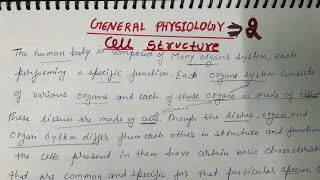 GENERAL PHYSIOLOGY ⇒ 2
Cell Structure
The human body is composed of Many organs system, each
performing a specific function. Each organs system consists
of various organs and each of these organs is made of
These tissues are made of cells. Though the tissue, organ, and
Organ System differ from each other in structure and function
the cells present in them have certain basic characteristic
that are common and specific for that particular